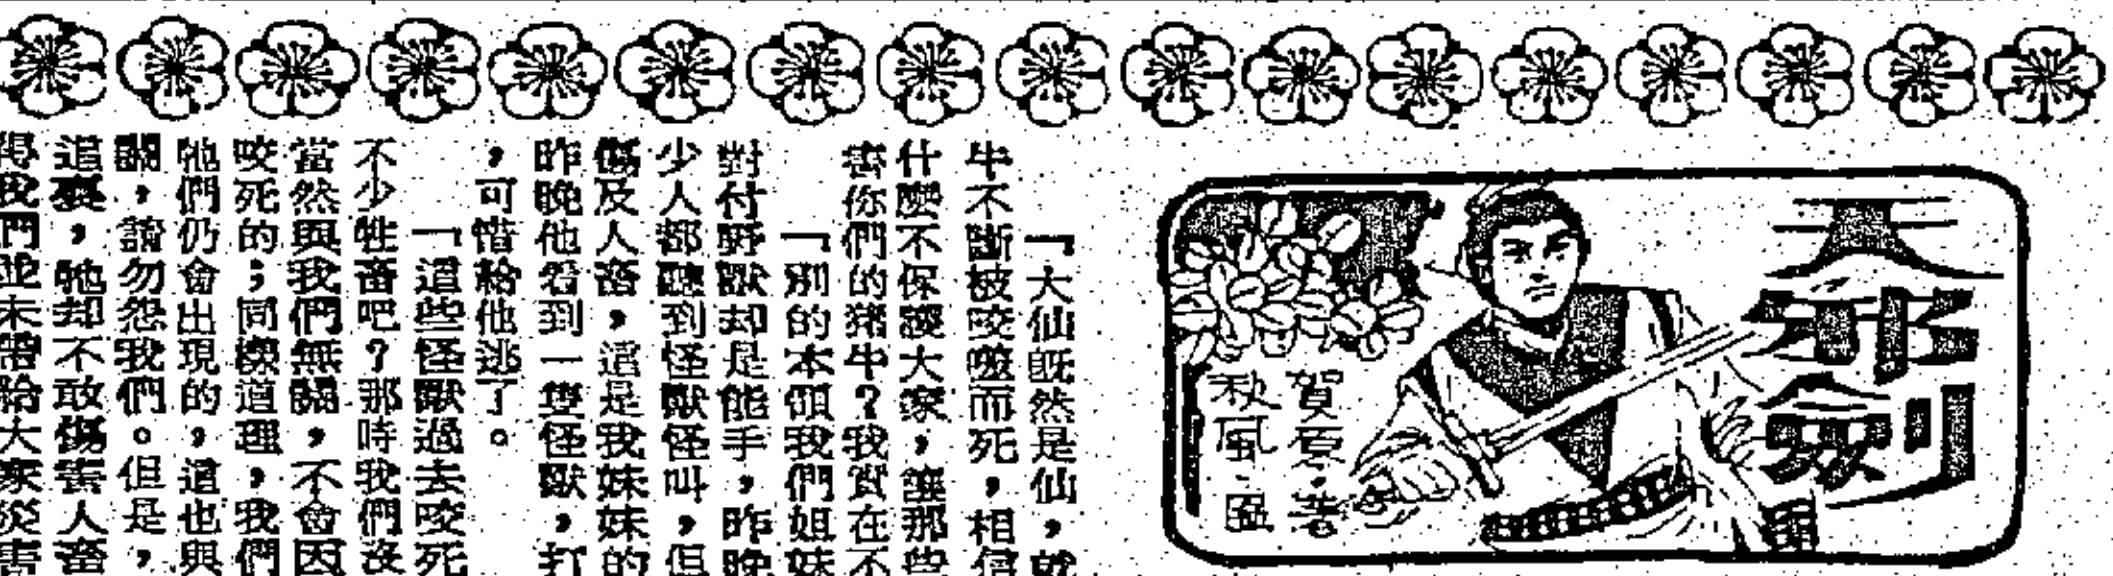 賀原‧著
秋風‧圖
「大仙既然是仙，就
牛不斷被咬噬而死，相信
什麼不保護大家，讓那些
害你們的猪牛？我實在不
「別的本領我們姐妹
對付野獸却是能手，昨晚
少人都聽到怪獸怪叫，但
傷及人畜，這是我妹妹的
昨晚他看到一隻怪獸，打
，可惜給他逃了。
「這些怪獸過去咬死
不少牲畜吧？那時我們沒
當然與我們無關，不會因
咬死的；同樣道理，我們
牠們仍會出現的，這也與
關，請勿怨我們。但是，
這裏，牠却不敢傷害人畜
得我們並未帶給大家災害